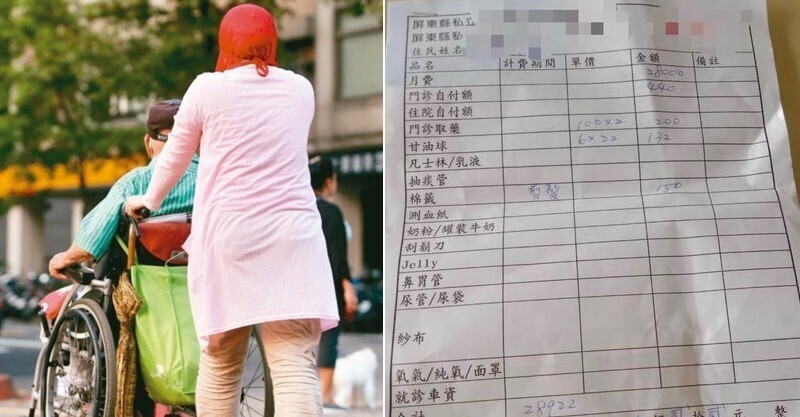 屏東縣私立
屏東縣私
住民姓名
品名 計費期間 單價 金額 備註
月費 28000
門診自付額 440
住院自付額
門診取藥 100x2 200
甘油球 6x22 132
凡士林/乳液
抽痰管
棉籤 剪髮 150
測血紙
奶粉/罐裝牛奶
刮鬍刀
Jelly
鼻胃管
尿管/尿袋
紗布
氧氣/純氧/面罩
就診車資
合計 28922 元 整